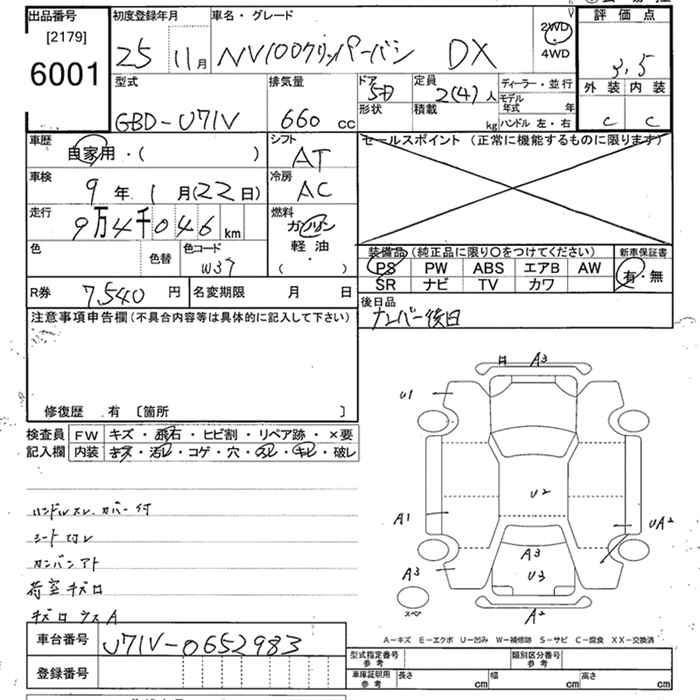 出品番号
[2179]
6001
初度登録年月
25 11月
車名・グレード
NV100クリッパーバン DX
2WD
4WD
評価点
3.5
外装 内装
C C
型式
GBD-U71V
排気量
660 cc
ドア
5D
形状
定員
2(4)人
積載
kg
ディーラー・並行
モデル年式 年
ハンドル 左・右
車歴
自家用・( )
シフト
AT
車検
9年1月(22日)
冷房
AC
走行
9万4千046km
燃料
ガソリン
軽油
( )
色
色替
色コード
W37
R券
7,540円
名変期限 月 日
セールスポイント(正常に機能するものに限ります)
装備品(純正品に限り〇をつけてください)
PS PW ABS エアB AW
SR ナビ TV カワ
新車保証書
有・無
後日品
ナンバー後日
注意事項申告欄(不具合内容等は具体的に記入して下さい)
修復歴 有 〔箇所 〕
検査員
記入欄
FW キズ・飛石・ヒビ割・リペア跡・×要
内装 キズ・汚レ・コゲ・穴・スレ・キレ・破レ
ハンドルスレ、カバー付
シート汚レ
カンバンアト
荷室キズロ
車台番号
U71V-0652983
登録番号
A3
U1
U2
A1
UA2
A3
A3
U3
A2
スペア
A−キズ E−エクボ U−凹み W−補修跡 S−サビ C−腐食 XX−交換済
型式指定番号
参考
類別区分番号
参考
車庫証明用
参考
長さ cm
幅 cm
高さ cm